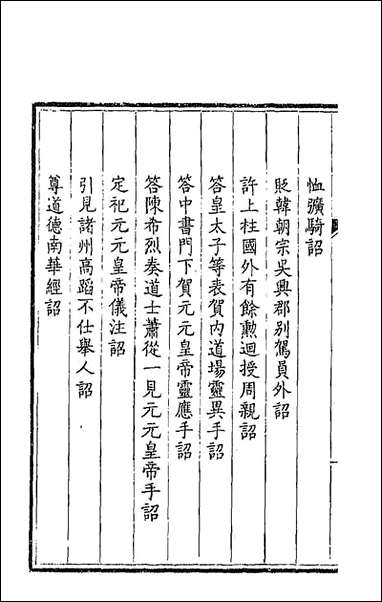 恤彍騎詔
貶韓朝宗吳興郡別駕員外詔
許上柱國外有餘勲迴授周親詔
答皇太子等表賀內道場靈異手詔
答中書門下賀元元皇帝靈應手詔
答陳希烈奏道士蕭從一見元元皇帝手詔
定祀元元皇帝儀注詔
引見諸州高蹈不仕舉人詔
尊道德南華經詔